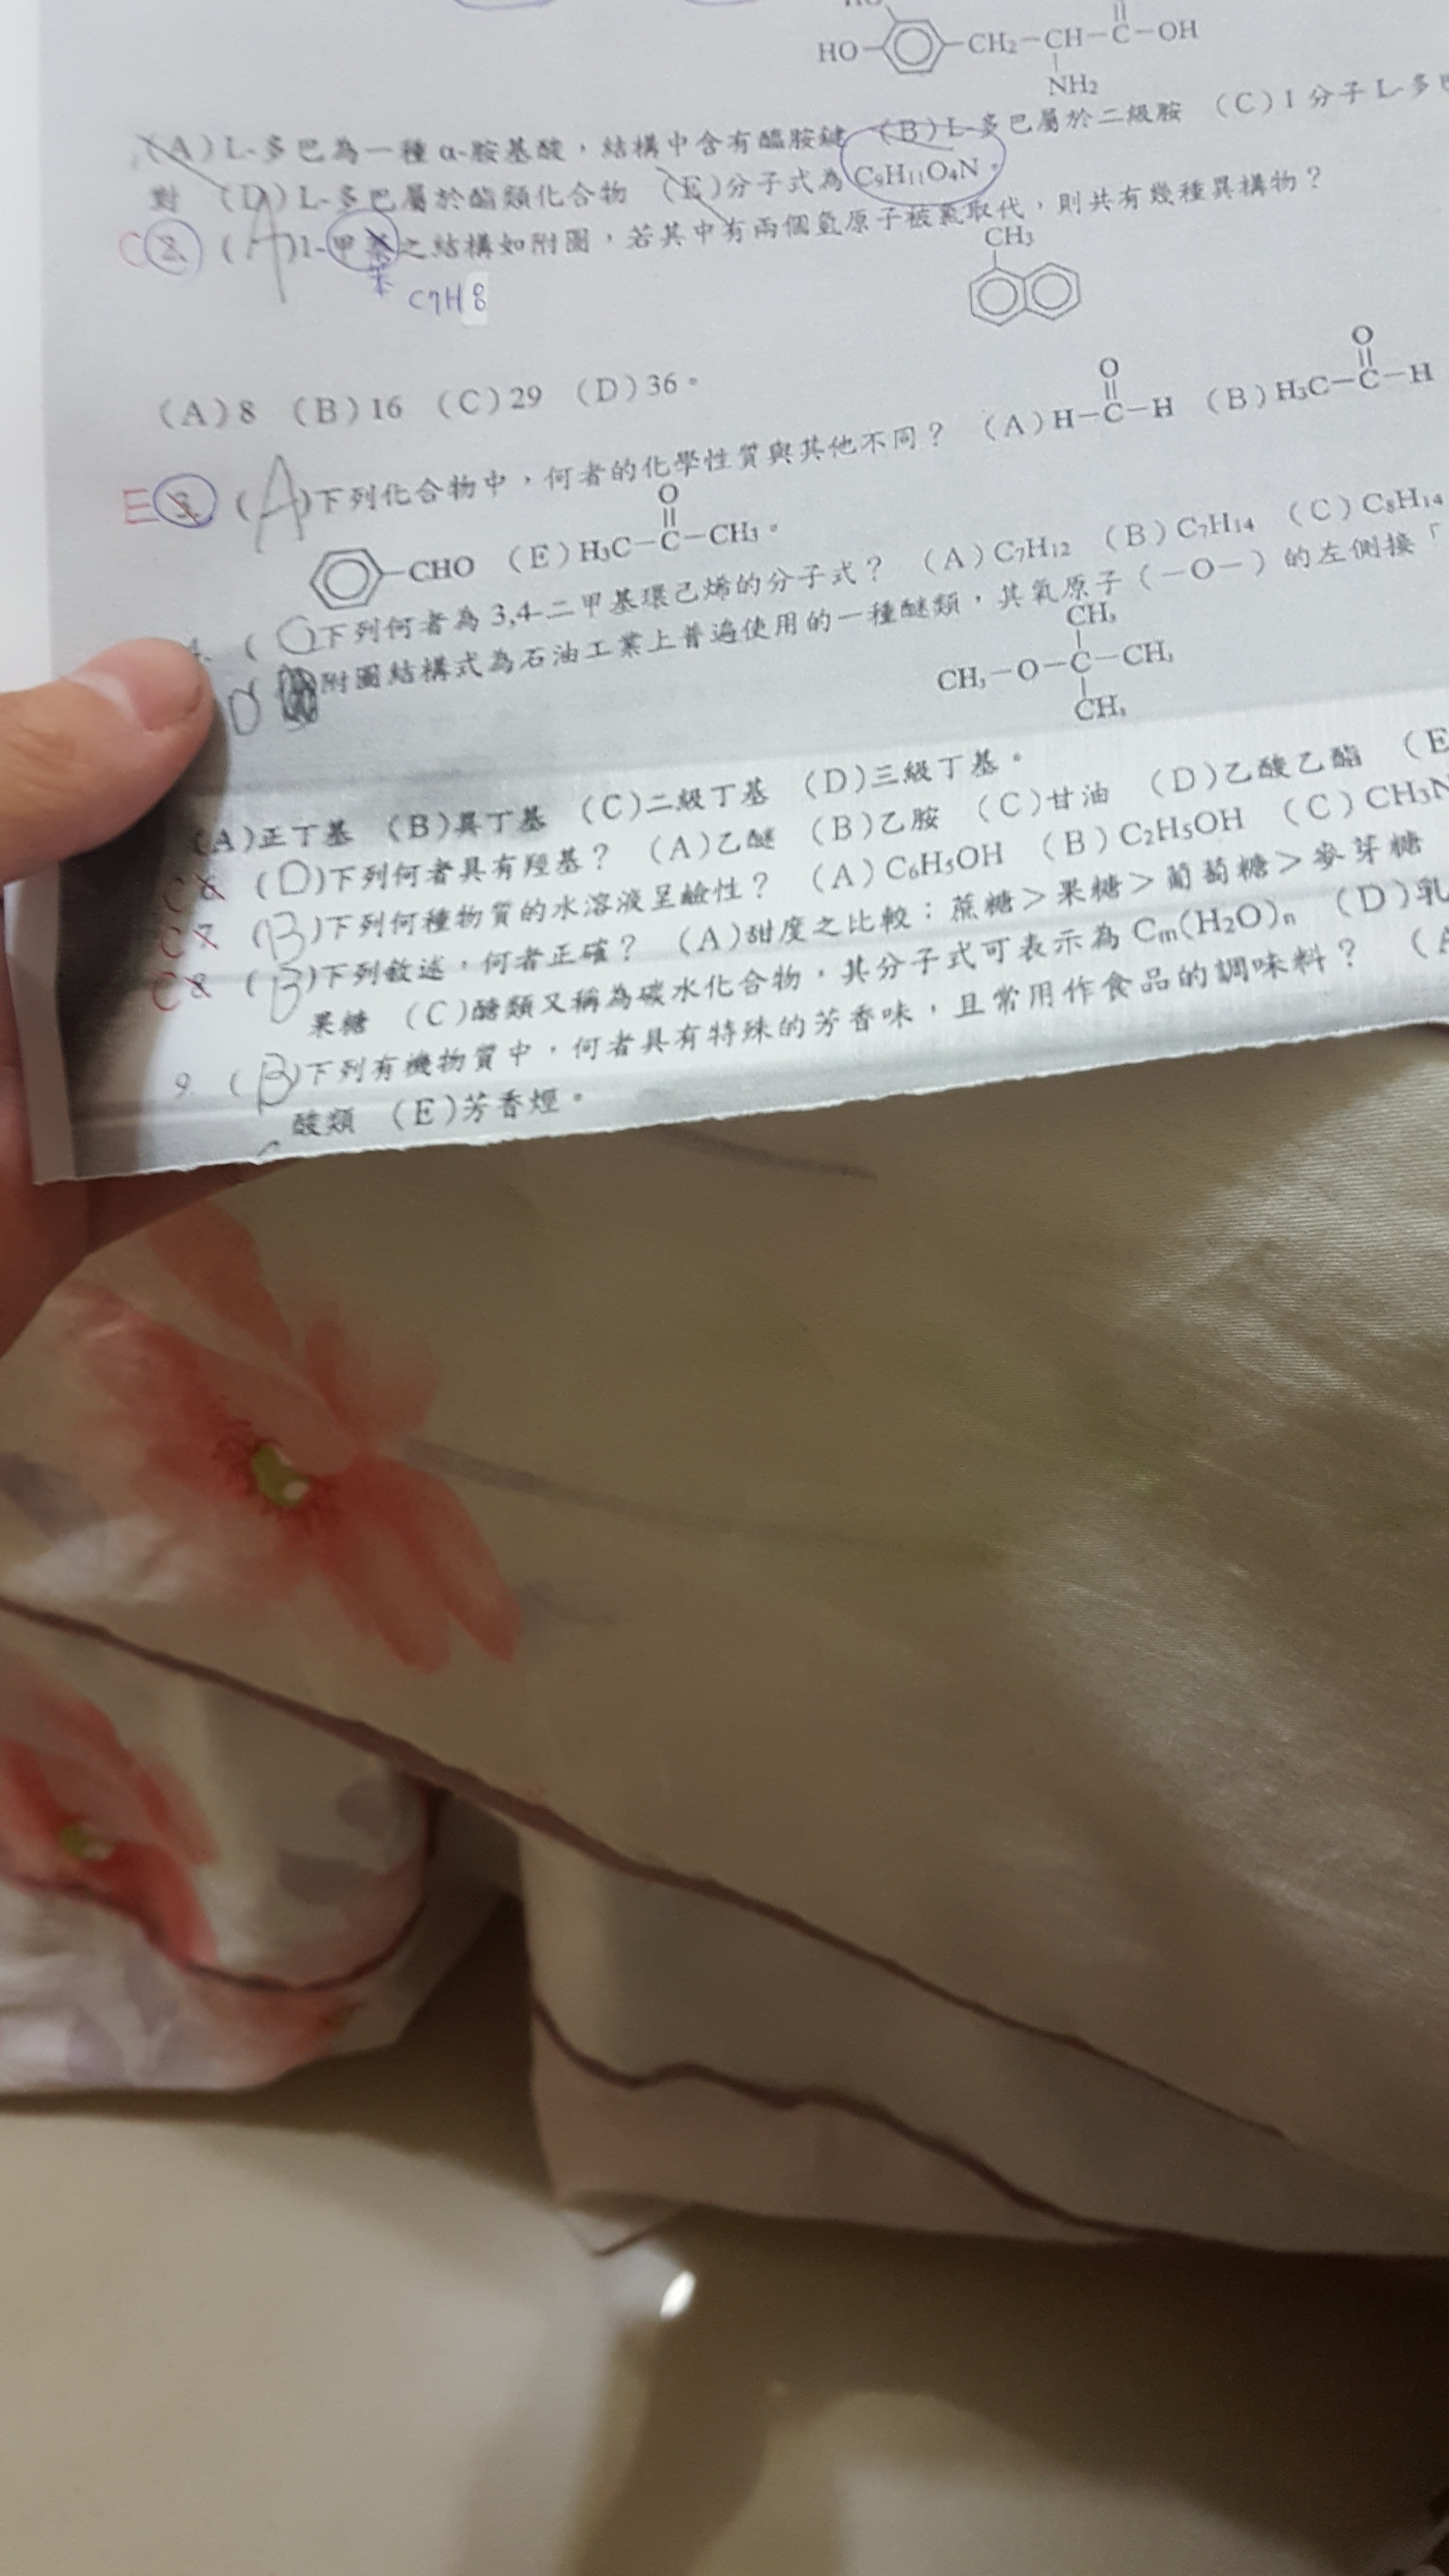 HO CH₂-CH-C-OH
NH₂
(A)L-多巴為一種α-胺基酸,結構中含有醯胺鍵 (B)L-多巴屬於二級胺 (C)1分子L-多巴
對 (D)L-多巴屬於酯類化合物 (E)分子式為C₉H₁₁O₄N。
C 2. (A)1-甲基之結構如附圖,若其中有兩個氫原子被氯取代,則共有幾種異構物?
苯 C7H8
CH₃
(A)8 (B)16 (C)29 (D)36。
E 3. (A)下列化合物中,何者的化學性質與其他不同? (A)H-C-H (B)H₃C-C-H
O O
O
CHO (E)H₃C-C-CH₃。
4. (C)下列何者為3,4-二甲基環己烯的分子式? (A)C₇H₁₂ (B)C₇H₁₄ (C)C₈H₁₄
D 附圖結構式為石油工業上普遍使用的一種醚類,其氧原子(-O-)的左側接「
CH₃
CH₃-O-C-CH₃
CH₃
(A)正丁基 (B)異丁基 (C)二級丁基 (D)三級丁基。
C 6 (D)下列何者具有羥基? (A)乙醚 (B)乙胺 (C)甘油 (D)乙酸乙酯 (E
C 7 (B)下列何種物質的水溶液呈鹼性? (A)C₆H₅OH (B)C₂H₅OH (C)CH₃N
C 8 (B)下列敘述,何者正確? (A)甜度之比較:蔗糖>果糖>葡萄糖>麥芽糖
果糖 (C)醣類又稱為碳水化合物,其分子式可表示為Cm(H₂O)n (D)乳
9. (B)下列有機物質中,何者具有特殊的芳香味,且常用作食品的調味料? (A
酸類 (E)芳香烴。